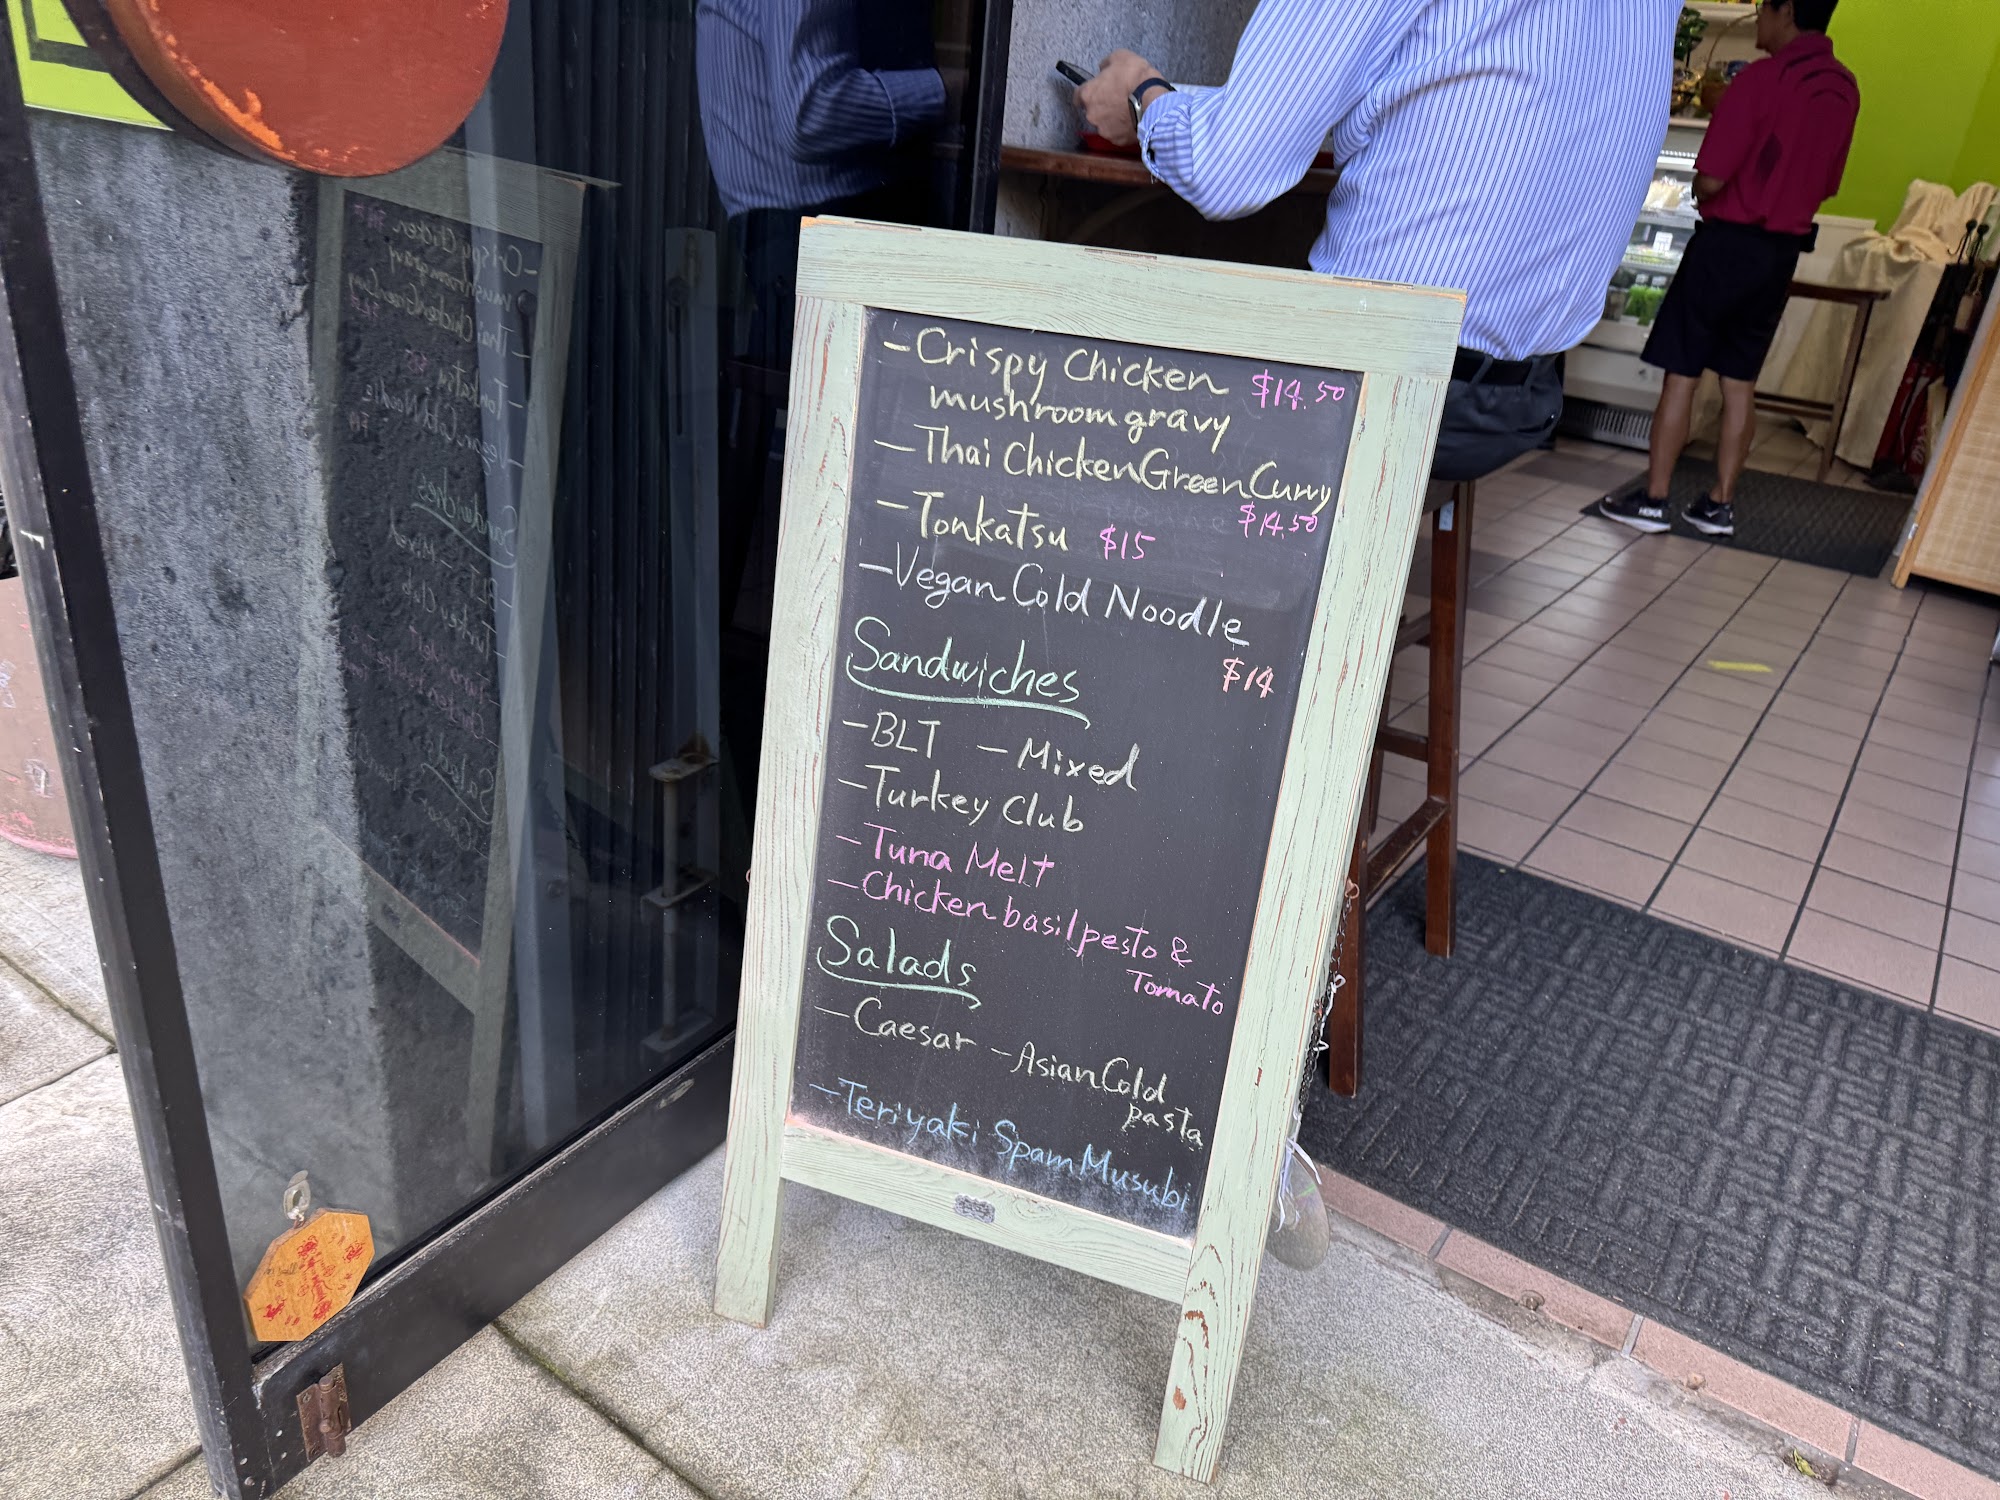 - Crispy Chicken $14.50
mushroom gravy
- Thai Chicken Green Curry
$14.50
- Tonkatsu $15
- Vegan Cold Noodle
$14
Sandwiches
- BLT - Mixed
- Turkey Club
- Tuna Melt
- Chicken basil pesto &
Tomato
Salads
- Caesar - Asian Cold
pasta
- Teriyaki Spam Musubi
HOKA